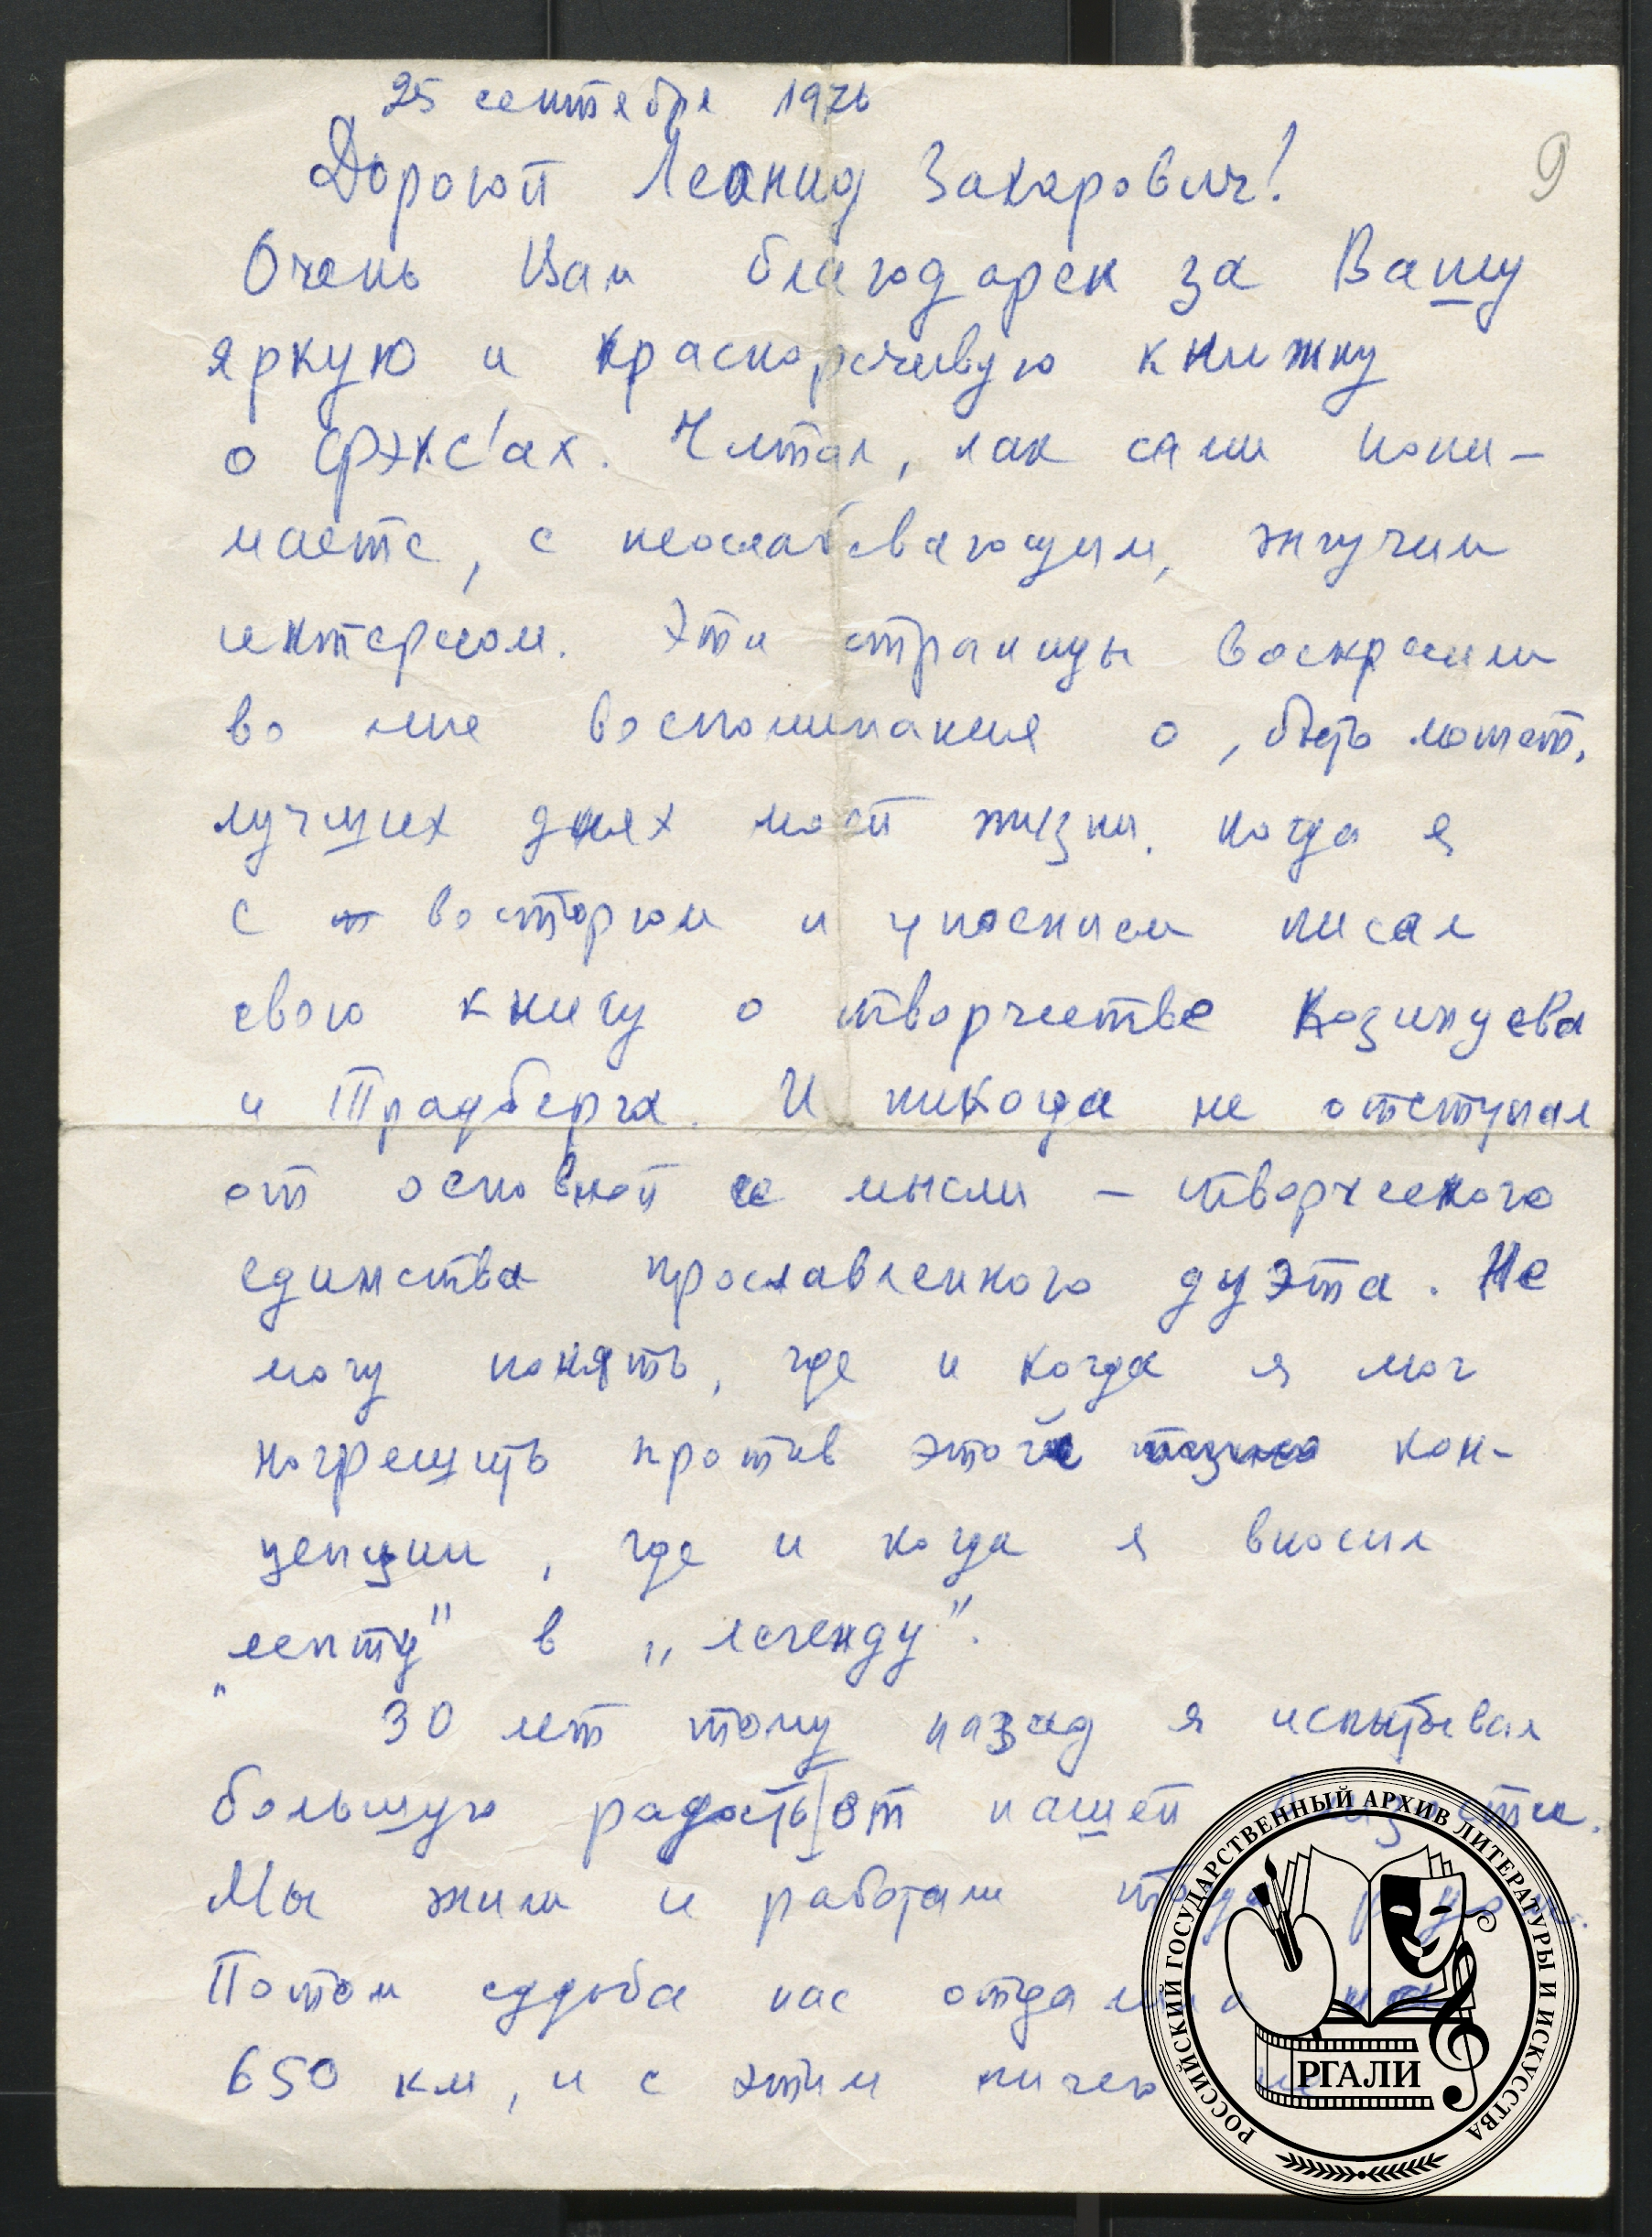 25 сентября 1976
9
Дорогой Леонид Захарович!
Очень Вам благодарен за Вашу
яркую и красноречивую книжку
о фэкс'ах. Читал, как сами пони-
маете, с неослабевающим, жгучим
интересом. Эти страницы воскресили
во мне воспоминания о, быть может,
лучших днях моей жизни, когда я
с восторгом и упоением писал
свою книгу о творчестве Козинцева
и Трауберга. И никогда не отступал
от основной ее мысли – творческого
единства прославленного дуэта. Не
могу понять, где и когда я мог
погрешить против этой кон-
цепции, где и когда я вносил
"лепту" в „легенду".
30 лет тому назад я испытывал
большую радость от нашей близости.
Мы жили и работали тогда рядом.
Потом судьба нас отдалила на
650 км, и с этим ничего не
РОССИЙСКИЙ ГОСУДАРСТВЕННЫЙ АРХИВ ЛИТЕРАТУРЫ И ИСКУССТВА
РГАЛИ